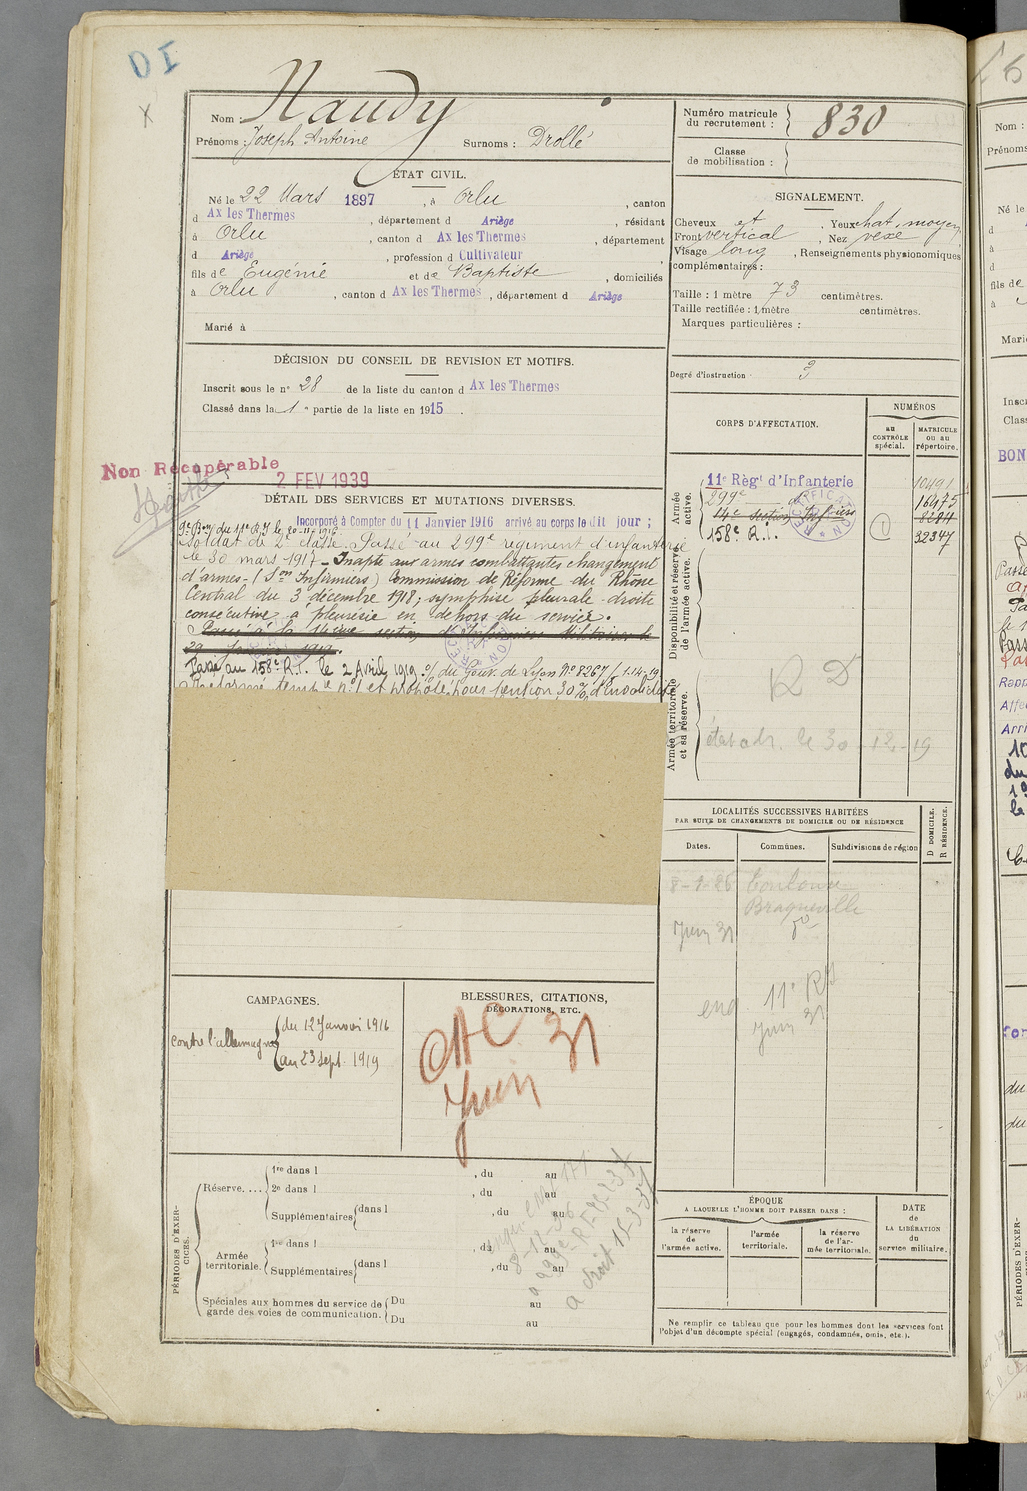 DI
X
Nom : Naudy
Prénoms : Joseph Antoine Surnoms : Drollé
Numéro matricule du recrutement : 830
Classe de mobilisation :
ÉTAT CIVIL.
Né le 22 Mars 1897, à Orlu, canton
d Ax les Thermes, département d Ariège, résidant
à Orlu, canton d Ax les Thermes, département
d Ariège, profession d Cultivateur
fils de Eugénie et de Baptiste, domiciliés
à Orlu, canton d Ax les Thermes, département d Ariège
Marié à
SIGNALEMENT.
Cheveux et, Yeux chat, moyen
Front vertical, Nez vexe
Visage long, Renseignements physionomiques
complémentaires :
Taille : 1 mètre 73 centimètres.
Taille rectifiée : 1 mètre centimètres.
Marques particulières :
Degré d'instruction 3
DÉCISION DU CONSEIL DE REVISION ET MOTIFS.
Inscrit sous le n° 28 de la liste du canton d Ax les Thermes
Classé dans la 1e partie de la liste en 1915.
Non Récupérable
2 FEV 1939
DÉTAIL DES SERVICES ET MUTATIONS DIVERSES.
Incorporé à Compter du 11 Janvier 1916 arrivé au corps le dit jour ;
9e Bon du 11e R.I le 20-11-1916
Soldat de 2e classe. Passé au 299e régiment d'infanterie
le 30 mars 1917 - Inapte aux armes combattantes changement
d'armes - (Son Infirmiers) Commission de Réforme du Rhône
Central du 3 décembre 1918; symphise pleurale droite
consécutive à pleurésie en dehors du service.
Passé à la 14ème section d'Infirmiers Militaires le
29 Janvier 1919.
Passé au 158e R.I. le 2 Avril 1919 o/ du Gouv. de Lyon No 8267/8 1.14.9.19
Réformé tempre no 1 et proposé pour pension 30% d'invalidité
CORPS D'AFFECTATION.
NUMÉROS
au CONTRÔLE spécial.
MATRICULE ou au répertoire.
Armée active.
11e Règt d'Infanterie 10491
299e d° 16975
14e section Infiers 8244
158e R.I. 32347
RECTIFICATION
Disponibilité et réserve de l'armée active.
R D
Armée territoriale et sa réserve.
état adr. le 30-12-19
LOCALITÉS SUCCESSIVES HABITÉES
PAR SUITE DE CHANGEMENTS DE DOMICILE OU DE RÉSIDENCE
Dates.
Communes.
Subdivisions de région
D DOMICILE.
R RÉSIDENCE.
Toulouse
Braqueville
Juin 31 d°
11e RI
Juin 31
CAMPAGNES.
contre l'allemagne
du 12 Janvier 1916
au 23 Sept. 1919
BLESSURES, CITATIONS,
DÉCORATIONS, ETC.
Juin 31
PÉRIODES D'EXERCICES.
Réserve....
1re dans l , du au
2e dans l , du au
Supplémentaires dans l , du au
Armée territoriale.
1re dans l , du au
Supplémentaires dans l , du au
Spéciales aux hommes du service de garde des voies de communication.
Du au
Du au
ÉPOQUE
A LAQUELLE L'HOMME DOIT PASSER DANS :
la réserve de l'armée active.
l'armée territoriale.
la réserve de l'armée territoriale.
DATE de LA LIBÉRATION du service militaire.
Ne remplir ce tableau que pour les hommes dont les services font
l'objet d'un décompte spécial (engagés, condamnés, omis, etc.).
Nom :
Prénoms
Né le
d
à
d
fils de
à
Marié
Inscr
Class
BON